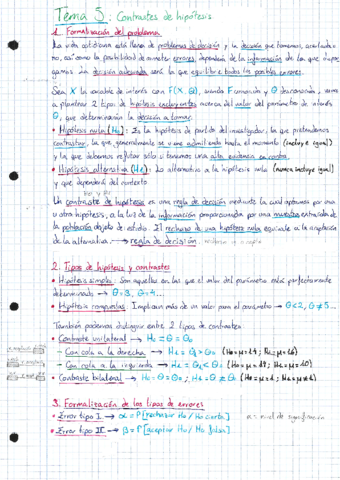 Tema 5: Contrastes de hipótesis
1. Formalización del problema
La vida cotidiana está llena de problemas de decisión y la decisión que tomemos, acertada o
no, así como la posibilidad de cometer errores, dependerá de la información de la que dispon-
gamos. La decisión adecuada será la que equilibre todos los posibles errores.
Sea X la variable de interés con F(X, Θ), siendo F conocida y Θ desconocido, vamos
a plantear 2 tipos de hipótesis excluyentes acerca del valor del parámetro de interés
Θ, que determinarán la decisión a tomar:
• Hipótesis nula (H₀): Es la hipótesis de partida del investigador, la que pretendemos
contrastar, la que generalmente se viene admitiendo hasta el momento (incluye el igual)
y la que debemos refutar sólo si tenemos una alta evidencia en contra.
• Hipótesis alternativa (H₁): La alternativa a la hipótesis nula (nunca incluye igual)
y que dependerá del contexto
H₀ y H₁
Un contraste de hipótesis es una regla de decisión mediante la cual optamos por una
u otra hipótesis, a la luz de la información proporcionada por una muestra extraída de
la población objeto de estudio. El rechazo de una hipótesis nula equivale a la aceptación
de la alternativa → regla de decisión.
2. Tipos de hipótesis y contrastes
• Hipótesis simples: Son aquellas en las que el valor del parámetro está perfectamente
determinado → Θ=3, Θ=4...
• Hipótesis compuestas: Implican más de un valor para el parámetro → Θ<2, Θ≠5...
También podemos distinguir entre 2 tipos de contrastes:
• Contraste unilateral → H₀ = Θ = Θ₀
– Con cola a la derecha → H₁ = Θ₁ > Θ₀
– Con cola a la izquierda → H₁ = Θ₁ < Θ₀
• Contraste bilateral → H₀ = Θ = Θ₀; H₁ = Θ ≠ Θ₀
3. Formalización de los tipos de errores
• Error tipo I → α = P[rechazar H₀/H₀ cierta] α = nivel de significación
• Error tipo II → β = P[aceptar H₀/H₀ falsa]